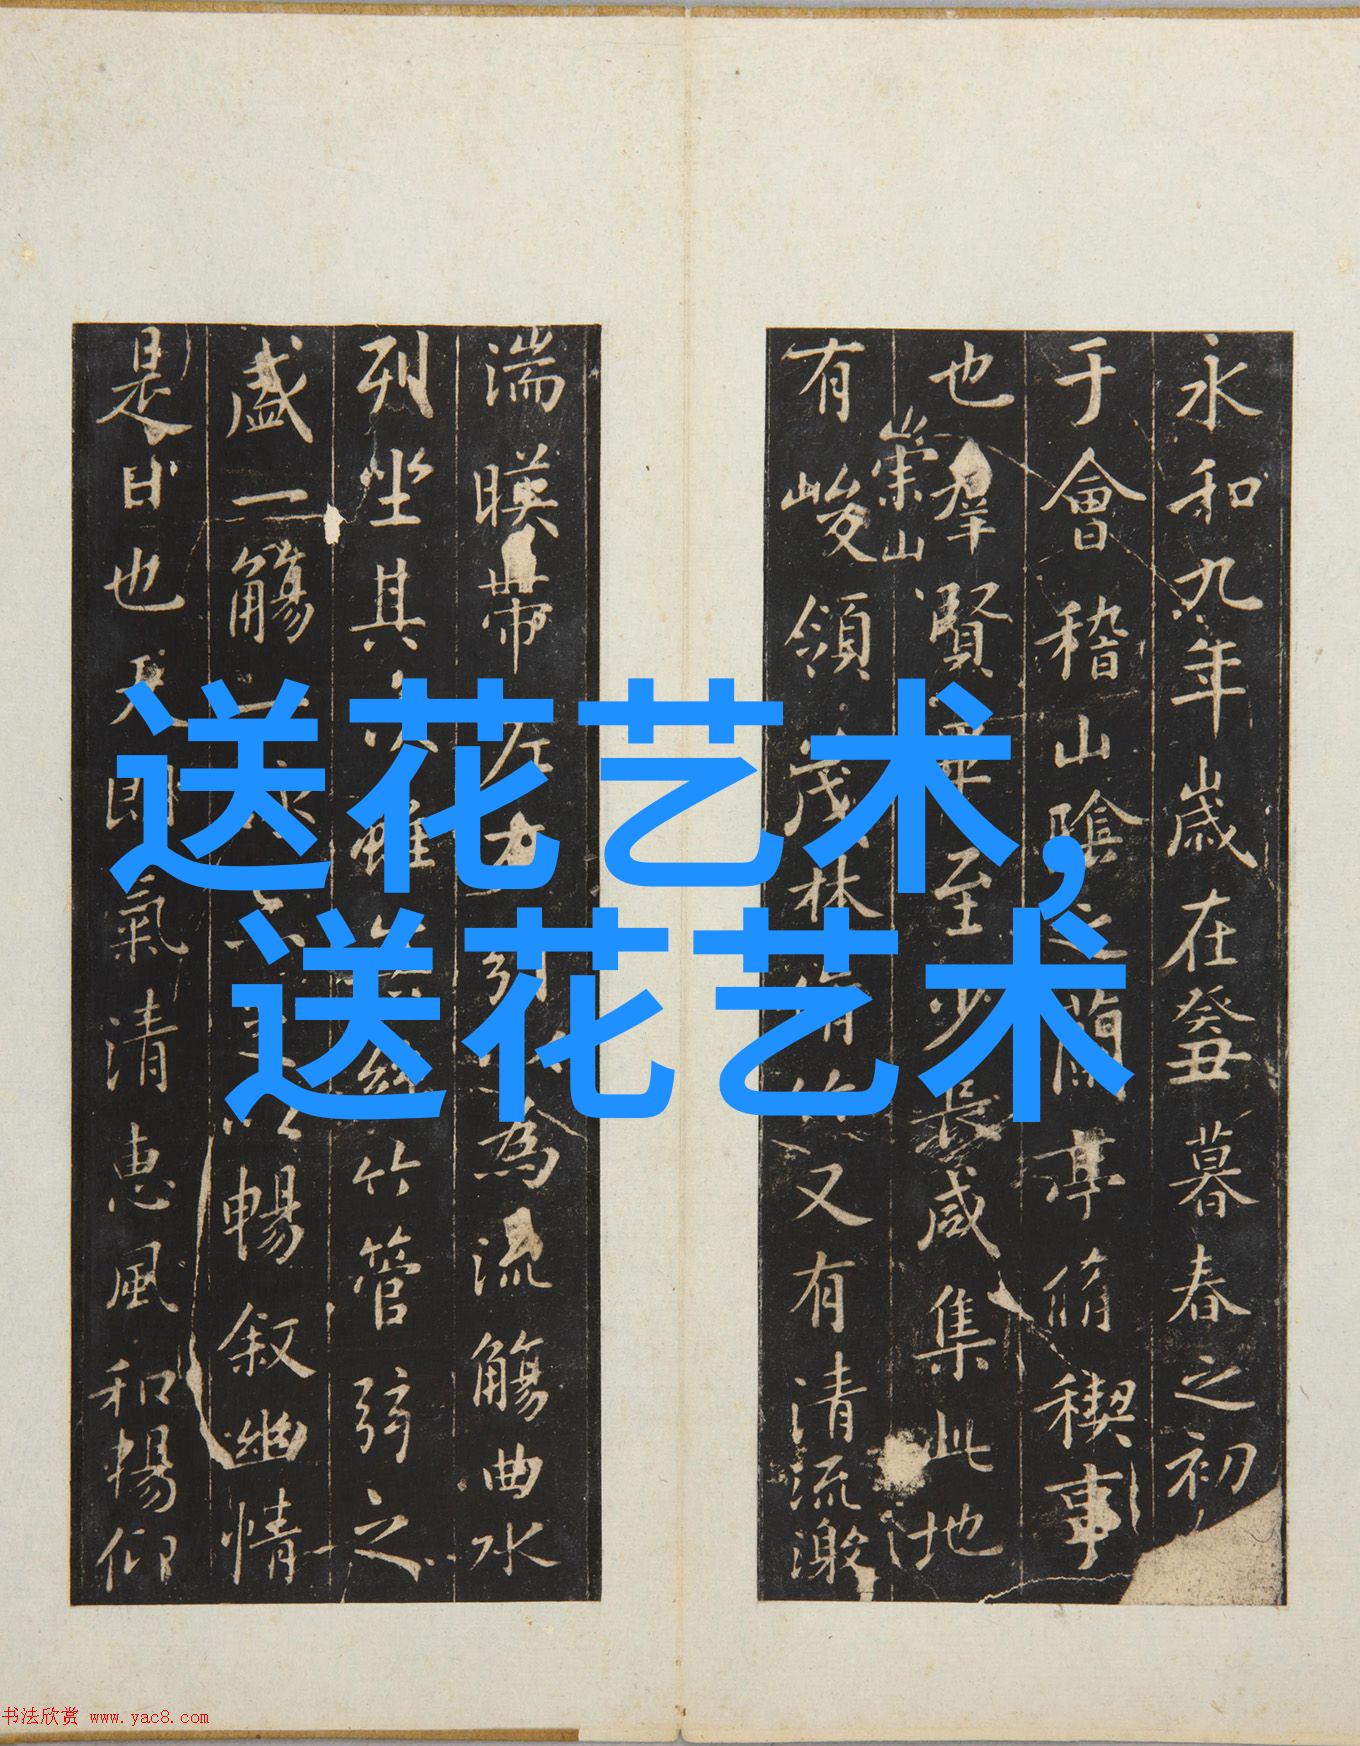 送花艺术,
送花艺术
永和九年歲在癸丑暮春之初
于會稽山陰之蘭亭脩稧事
也羣賢畢至少長咸集此地
有崇山峻領茂林脩竹又有清流激
湍暎帶左右引以為流觴曲水
列坐其次雖無絲竹管弦之
盛一觴一詠亦足以暢叙幽情
是日也天朗氣清恵風和暢仰
书法欣赏 www.yac8.com